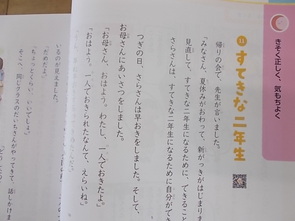 C
きそく正しく、気もちよく
11 すてきな二年生
帰りの会で、先生が言いました。
「みなさん、夏休みがおわって、新がっきがはじまりま
見直して、すてきな二年生になるために、できること
さらさんは、すてきな二年生になるために自分ができ
つぎの日、さらさんは早おきをしました。そして、
お母さんにあいさつをしました。
「お母さん、おはよう。わたし、一人でおきたよ。」
「おはよう。一人でおきられたなんて、えらいね。」
いるのが見えました。
「だめだよ。
「ちょっとくらい、いいでしょ。
そこへ、同じクラスの
やってきて、話しかけま